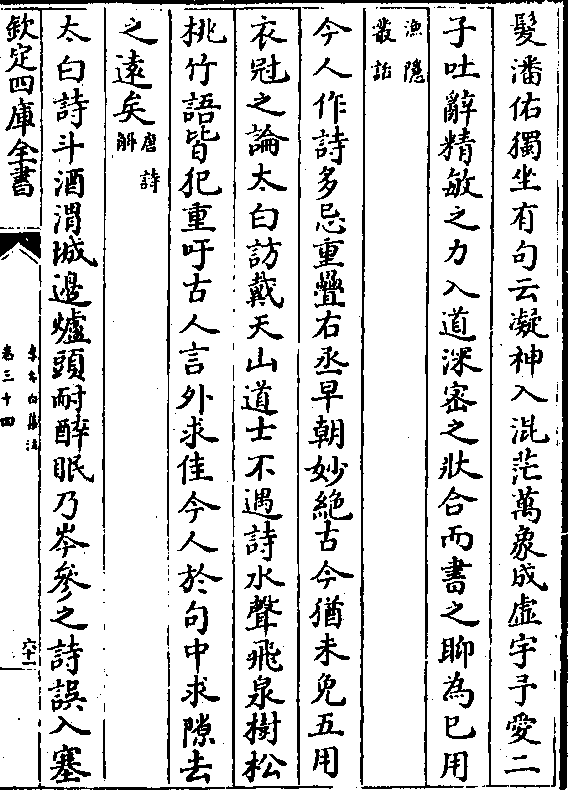 髮潘佑獨坐有句云凝神入混茫萬象成虛宇予愛二
子吐辭精敏之力入道深密之狀合而書之聊為已用
漁隱
叢話
今人作詩多忌重疊右丞早朝妙絶古今猶未免五用
衣冠之論太白訪戴天山道士不遇詩水聲飛泉樹松
桃竹語皆犯重吁古人言外求佳今人於句中求隙去
之遠矣
唐詩
解
太白詩斗酒渭城邊爐頭耐醉眠乃岑參之詩誤入塞
欽定四庫全書
李太白集注
卷三十四
六十一